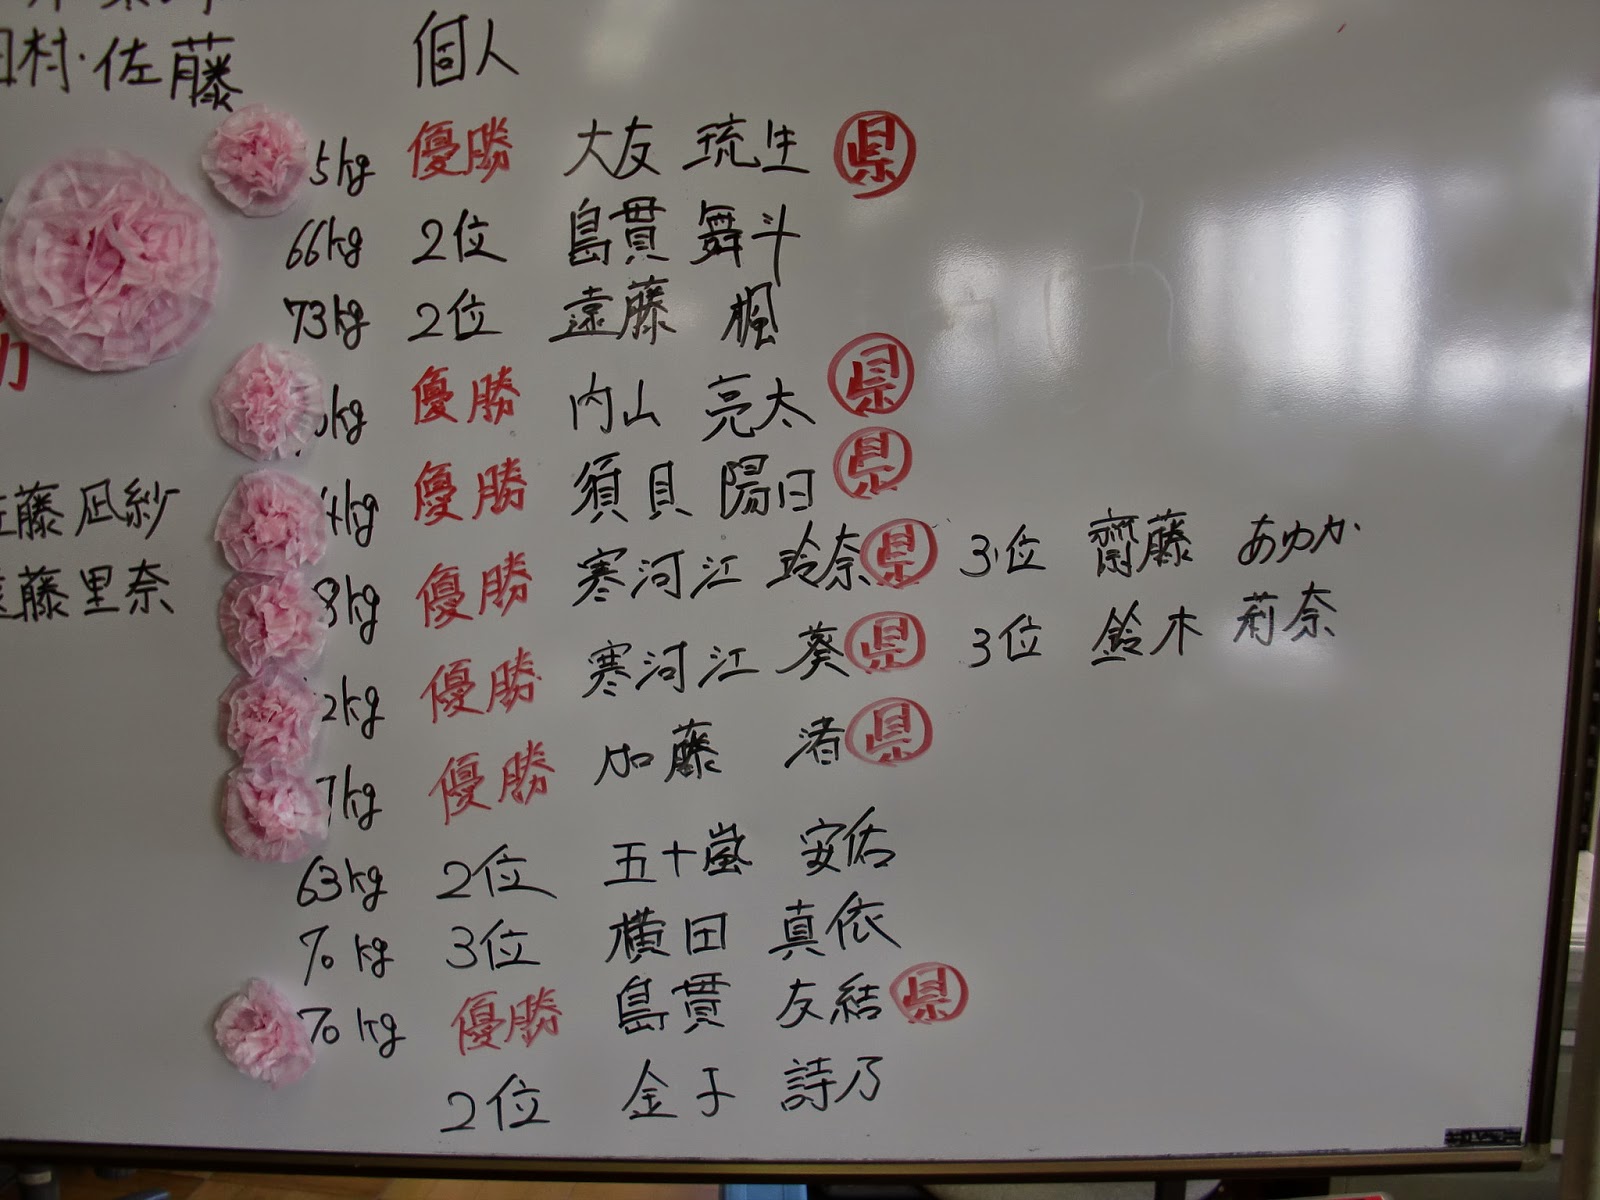 田村・佐藤
個人
5kg 優勝 大友 琉生 県
66kg 2位 島貫 舞斗
73kg 2位 遠藤 楓
kg 優勝 内山 亮太 県
4kg 優勝 須貝 陽日 県
佐藤 凪紗
8kg 優勝 寒河江 玲奈 県 3位 齋藤 あゆか
遠藤里奈
2kg 優勝 寒河江 葵 県 3位 鈴木 莉奈
7kg 優勝 加藤 渚 県
63kg 2位 五十嵐 安佑
70kg 3位 横田 真依
70kg 優勝 島貫 友結 県
2位 金子 詩乃